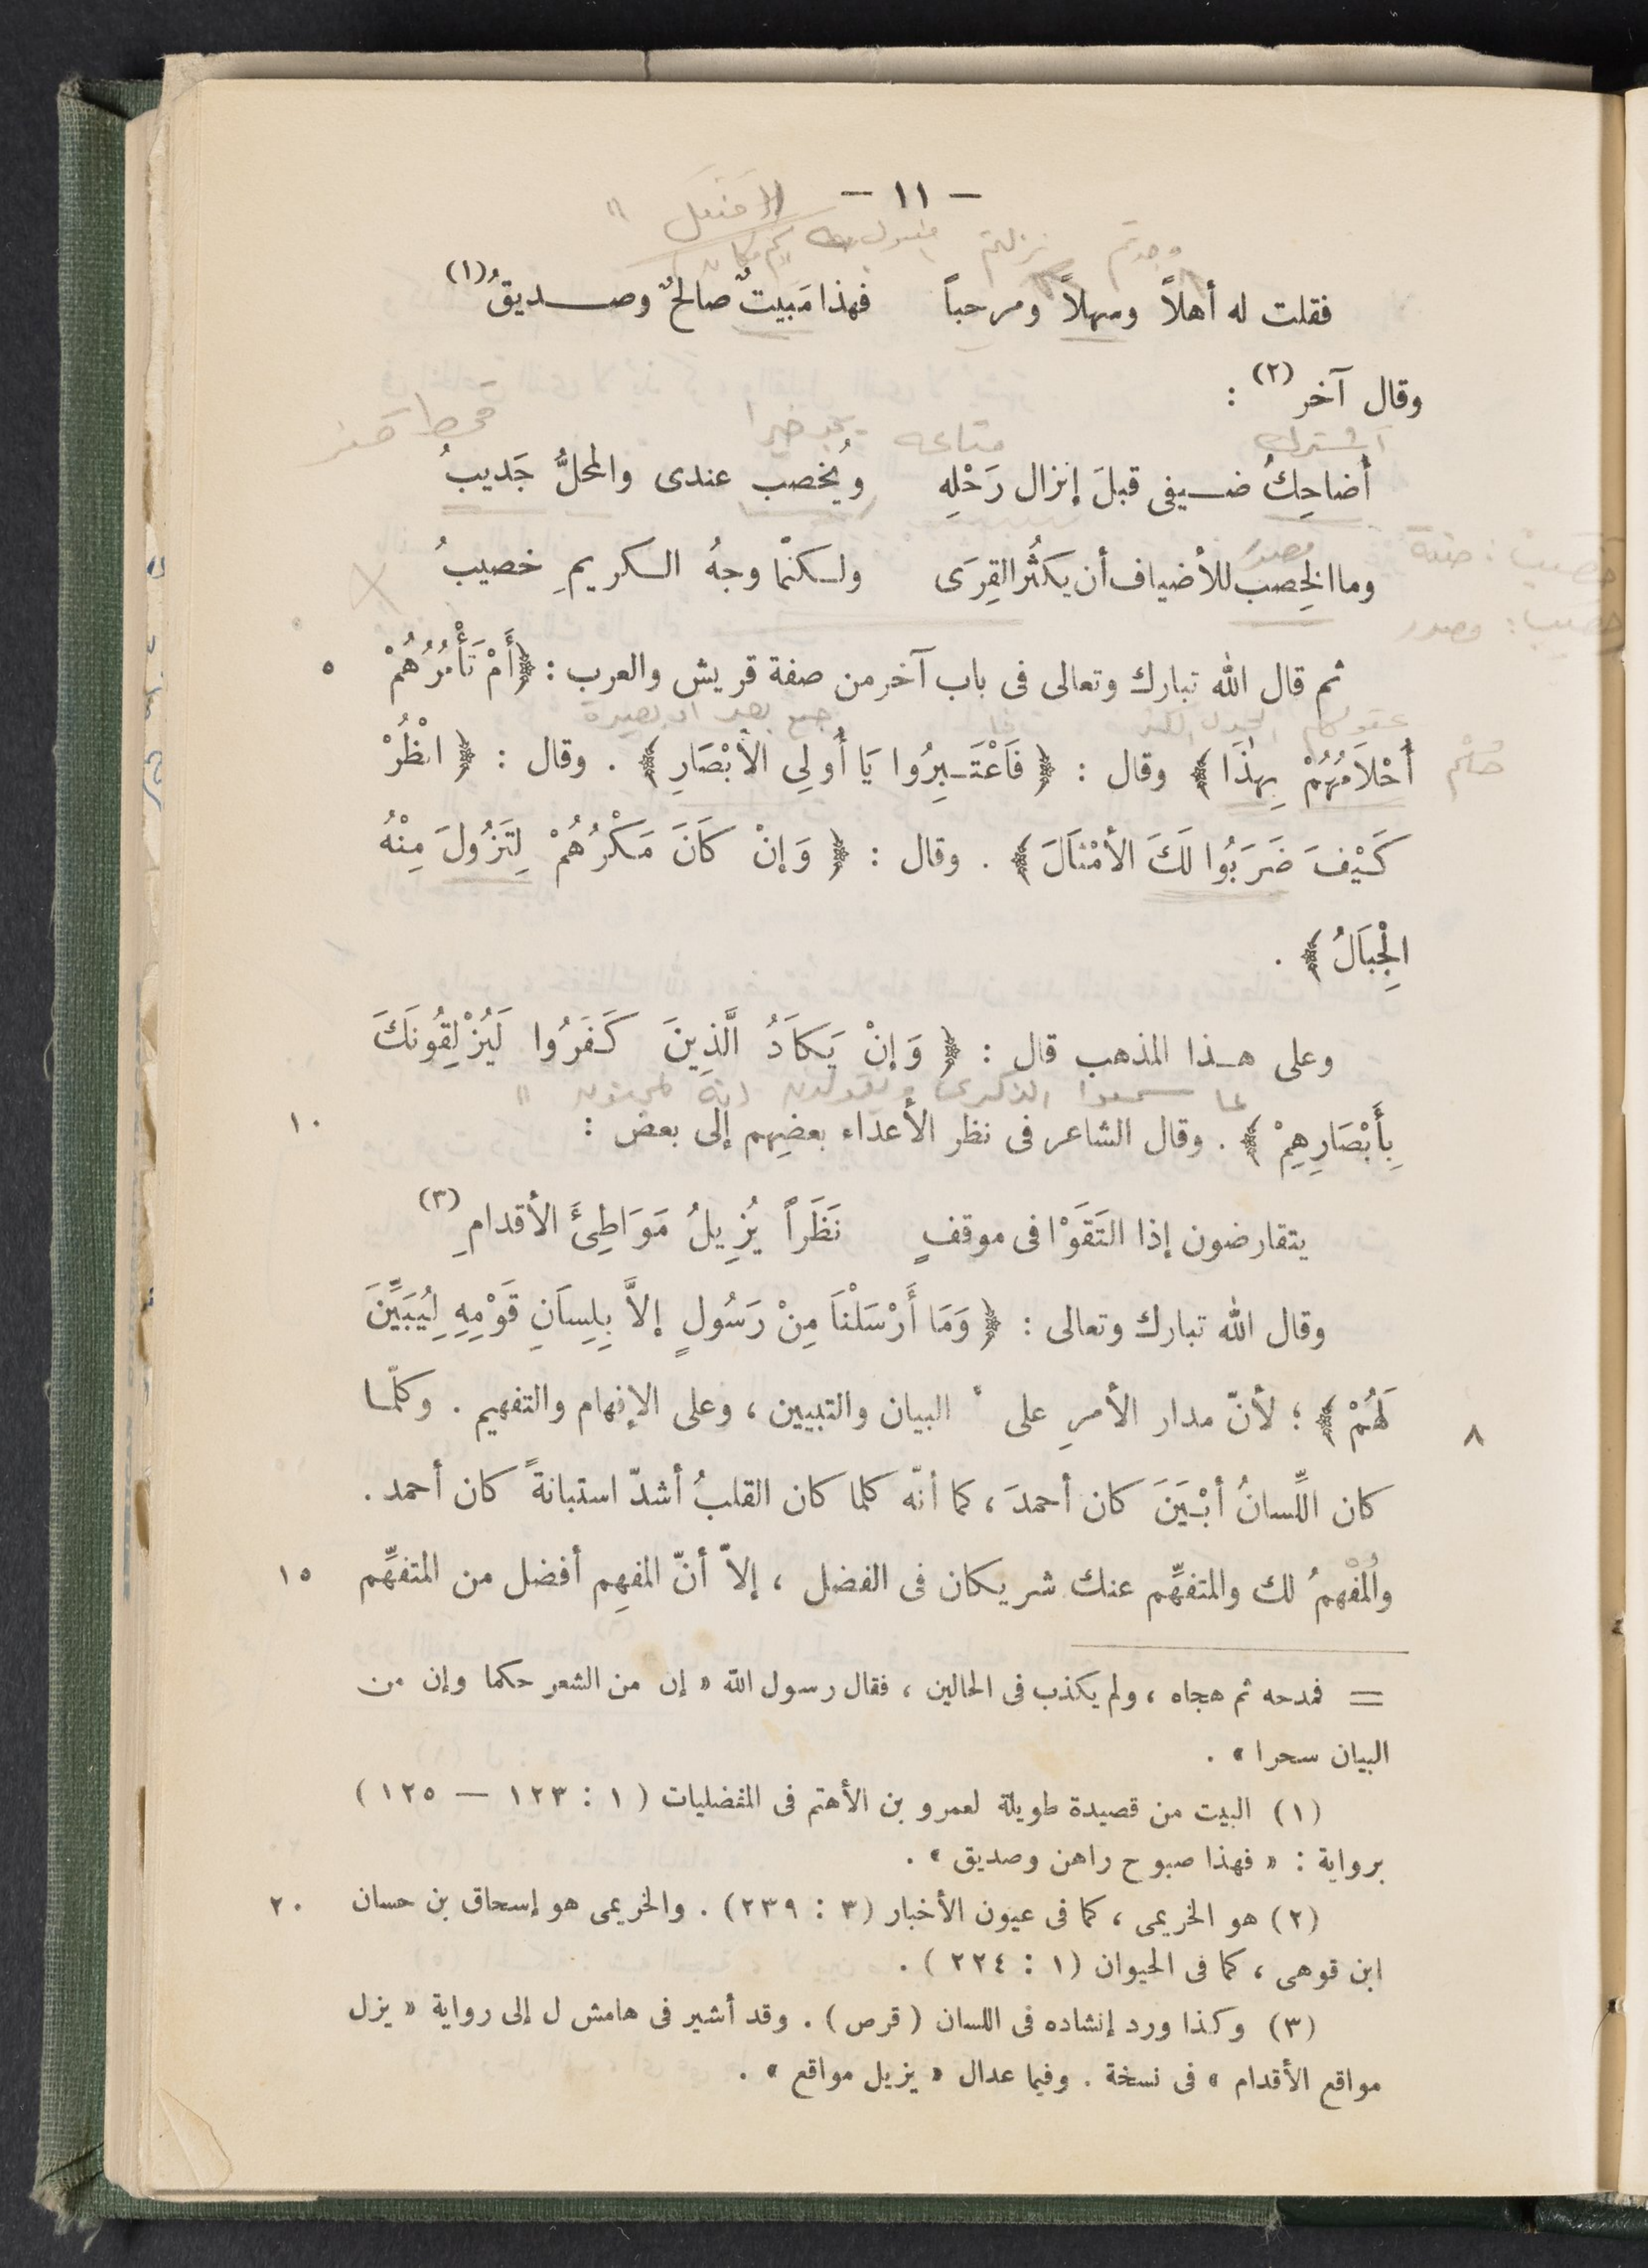 — ١١ —
فقلت له أهلاً وسهلاً ومرحباً فهذا مَبيتٌ صالحٌ وصديقُ (١)
وقال آخر (٢) :
أضاحِكُ ضيفى قبلَ إنزال رَحْلِه ويُخصب عندى والمحلُّ جَديبُ
وما الخِصب للأضياف أن يكثُر القِرَى ولكنّما وجهُ الكريمِ خصيبُ
ثم قال الله تبارك وتعالى فى باب آخر من صفة قريش والعرب : ﴿ أَمْ تَأْمُرُهُمْ ٥
أَحْلاَمُهُمْ بِهٰذَا ﴾ وقال : ﴿ فَاعْتَبِرُوا يَا أُولِى الأَبْصَارِ ﴾ . وقال : ﴿ انْظُرْ
كَيْفَ ضَرَبُوا لَكَ الأَمْثاَلَ ﴾ . وقال : ﴿ وَإِنْ كَانَ مَكْرُهُمْ لِتَزُولَ مِنْهُ
الْجِبَالُ ﴾ .
وعلى هذا المذهب قال : ﴿ وَإِنْ يَكَادُ الَّذِينَ كَفَرُوا لَيُزْلِقُونَكَ
لما سمعوا الذكرى ويقولون إنه لمجنون "
بِأَبْصَارِهِمْ ﴾ . وقال الشاعر فى نظر الأعداء بعضِهم إلى بعض : ١٠
يتقارضون إذا التَقَوْا فى موقفٍ نَظَراً يُزِيلُ مَوَاطِئَ الأقدامِ (٣)
وقال الله تبارك وتعالى : ﴿ وَمَا أَرْسَلْنَا مِنْ رَسُولٍ إلاَّ بِلِسَانِ قَوْمِهِ لِيُبَيِّنَ
٨ لَهُمْ ﴾ ؛ لأنّ مدار الأمرِ على ْ البيان والتبيين ، وعلى الإفهام والتفهيم . وكلّما
كان اللِّسانُ أبْيَنَ كان أحمدَ ، كما أنّه كلما كان القلبُ أشدّ استبانةً كان أحمد .
والمُفْهِمُ لك والمتفهِّم عنك شريكان فى الفضل ، إلاّ أنّ المفهِم أفضل من المتفهِّم ١٥
= فمدحه ثم هجاه ، ولم يكذب فى الحالين ، فقال رسول الله « إن من الشعر حكما وإن من
البيان سحرا » .
(١) البيت من قصيدة طويلة لعمرو بن الأهتم فى المفضليات ( ١ : ١٢٣ — ١٢٥ )
برواية : « فهذا صبوح راهن وصديق » .
(٢) هو الخريمى ، كما فى عيون الأخبار (٣ : ٢٣٩) . والخريمى هو إسحاق بن حسان ٢٠
ابن قوهى ، كما فى الحيوان (١ : ٢٢٤ ) .
(٣) وكذا ورد إنشاده فى اللسان ( قرص ) . وقد أشير فى هامش ل إلى رواية « يزل
مواقع الأقدام » فى نسخة . وفيما عدال « يزيل مواقع » .